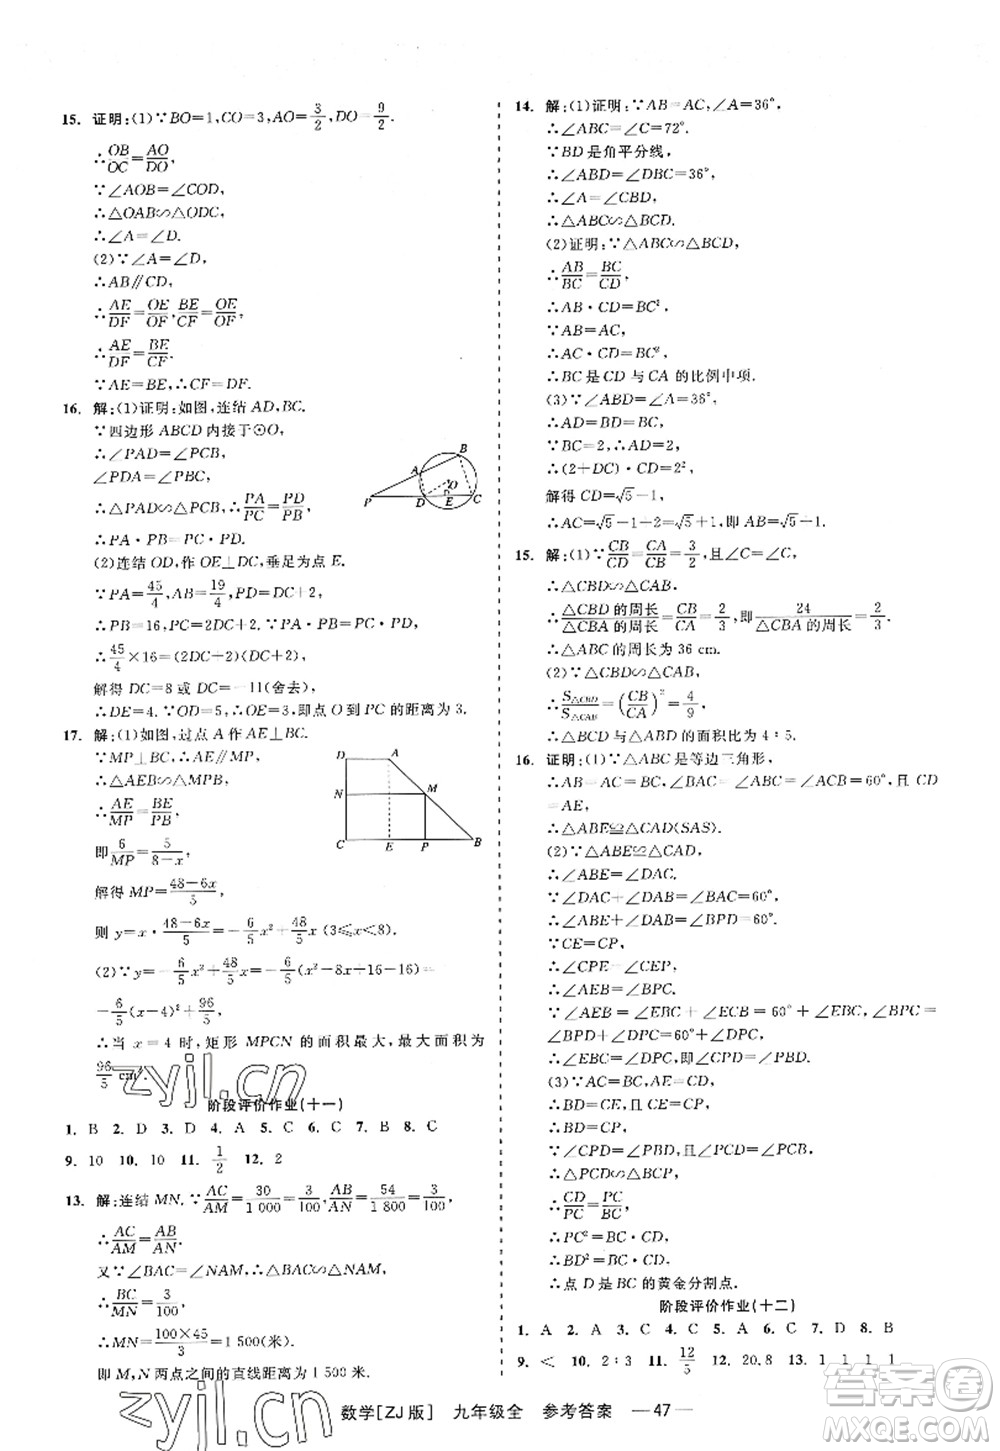 15. 证明:(1)∵BO=1,CO=3,AO=3/2,DO=9/2.
∴OB/OC=AO/DO.
∵∠AOB=∠COD,
∴△OAB∽△ODC,
∴∠A=∠D.
(2)∵∠A=∠D,
∴AB∥CD,
∴AE/DF=OE/OF,BE/CF=OE/OF,
∴AE/DF=BE/CF.
∵AE=BE,∴CF=DF.
16. 解:(1)证明:如图,连结AD,BC.
∵四边形ABCD内接于⊙O,
∴∠PAD=∠PCB,
∠PDA=∠PBC,
∴△PAD∽△PCB,∴PA/PC=PD/PB,
∴PA·PB=PC·PD.
(2)连结OD,作OE⊥DC,垂足为点E.
∵PA=45/4,AB=19/4,PD=DC+2,
∴PB=16,PC=2DC+2.
∴45/4×16=(2DC+2)(DC+2),
解得DC=8或DC=-11(舍去).
∴DE=4.∵OD=5,∴OE=3,即点O到PC的距离为3.
17. 解:(1)如图,过点A作AE⊥BC.
∵MP⊥BC,∴AE∥MP,
∴△AEB∽△MPB,
∴AE/MP=BE/PB,
即6/MP=5/(8-x),
解得MP=(48-6x)/5,
则y=x·(48-6x)/5=-6/5x²+48/5x(3≤x<8).
(2)∵-6/5x²+48/5x=-6/5(x²-8x+16-16)=
-6/5(x-4)²+96/5,
∴当x=4时,矩形MPCN的面积最大,最大面积为
96/5 cm².
阶段评价作业(十一)
1. B 2. D 3. D 4. A 5. C 6. D 7. B 8. C
9. 10 10. 10 11. 1/2 12. 2
13. 解:连结MN.∵AC/AM=30/1 000=3/100,AB/AN=54/1 800=3/100,
∴AC/AM=AB/AN.
又∵∠BAC=∠NAM,∴△BAC∽△NAM,
∴BC/MN=3/100,
∴MN=100×45/3=1 500(米).
即M,N两点之间的直线距离为1 500米.
14. 解:(1)证明:∵AB=AC,∠A=36°,
∴∠ABC=∠C=72°.
∵BD是角平分线,
∴∠ABD=∠DBC=36°,
∴∠A=∠CBD,
∴△ABC∽△BCD.
(2)证明:∵△ABC∽△BCD,
∴AB/BC=BC/CD,
∴AB·CD=BC².
∵AB=AC,
∴AC·CD=BC²,
∴BC是CD与CA的比例中项.
(3)∵∠ABD=∠A=36°,
∴AD=BD=BC.
∵BC=2,∴AD=2,
∴(2+DC)·CD=2²,
解得CD=√5-1,
∴AC=√5-1+2=√5+1,即AB=√5+1.
15. 解:(1)∵CB/CD=CA/CB=3/2,且∠C=∠C,
∴△CBD∽△CAB.
∴△CBD的周长/△CBA的周长=CB/CA=2/3,即24/△CBA的周长=2/3.
∴△ABC的周长为36 cm.
(2)∵△CBD∽△CAB,
∴S△CBD/S△CAB=(CB/CA)²=4/9,
∴△BCD与△ABD的面积比为4∶5.
16. 证明:(1)∵△ABC是等边三角形,
∴AB=AC=BC,∠BAC=∠ACB=60°,且CD
=AE,
∴△ABE≌△CAD(SAS).
(2)∵△ABE≌△CAD,
∴∠ABE=∠CAD.
∵∠DAC+∠DAB=∠BAC=60°,
∴∠ABE+∠DAB=60°=∠BPD.
∵CE=CP,
∴∠CPE=∠CEP,
∴∠AEB=∠BPC.
∵∠AEB=∠EBC+∠ECB=∠EBC+60°,
∠BPC=∠BPD+∠DPC=60°+∠DPC,
∴∠EBC=∠DPC,即∠DPC=∠PBD.
(3)∵AC=BC,AE=CD,
∴BD=CE,且CE=CP,
∴BD=CP.
∵∠CPD=∠PBD,∠PCD=∠PCB,
∴△PCD∽△BCP,
∴CD/PC=PC/BC,
∴PC²=BC·CD,
∴BD²=BC·CD,
∴点D是BC的黄金分割点.
阶段评价作业(十二)
1. A 2. A 3. C 4. A 5. C 6. C 7. D 8. B
9. < 10. 2∶3 11. 12/5 12. 20.8 13. 1 1 1 1
数学[ZJ版] 九年级全 参考答案 — 47 —
zyjl.cn
zyjl.cn
答案圈
MXQE.COM